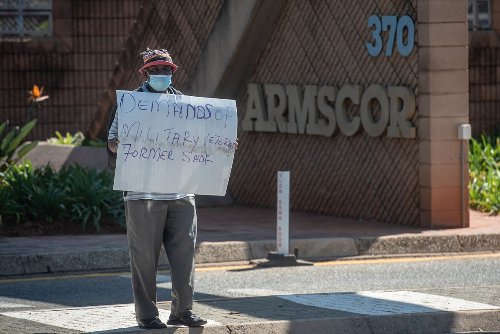 370
ARMSCOR
DEMANDS OF
MILITARY VETERANS
FORMER SADF